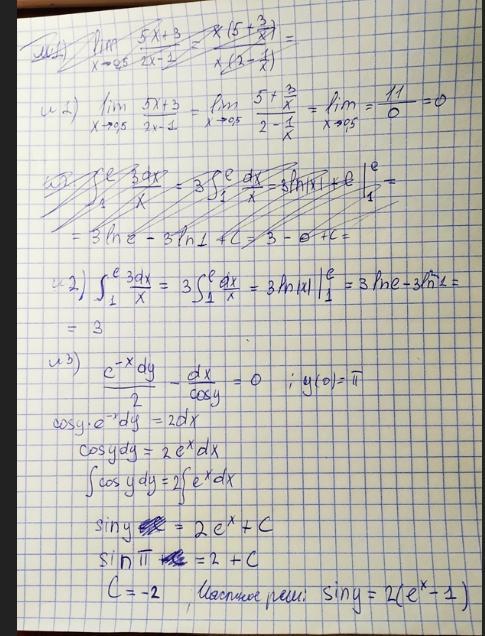 n1) lim x→0,5 5x+3 / 2x-1 = x(5+3/x) / x(2-1/x) =
n1) lim x→0,5 5x+3 / 2x-1 = lim x→0,5 5+3/x / 2-1/x = lim x→0,5 = 11/0 = 0
n2) ∫₁ᵉ 3dx/x = 3∫₁ᵉ dx/x = 3ln|x| + C |₁ᵉ =
= 3lne - 3ln1 + C = 3 - 0 + C =
n2) ∫₁ᵉ 3dx/x = 3∫₁ᵉ dx/x = 3ln|x| |₁ᵉ = 3lne - 3ln1 =
= 3
n3) e⁻ˣdy / 2 - dx / cosy = 0 ; y(0) = π
cosy·e⁻ˣdy = 2dx
cosydy = 2eˣdx
∫cosydy = 2∫eˣdx
siny = 2eˣ + C
sinπ = 2 + C
C = -2 , Частное реш: siny = 2(eˣ - 1)